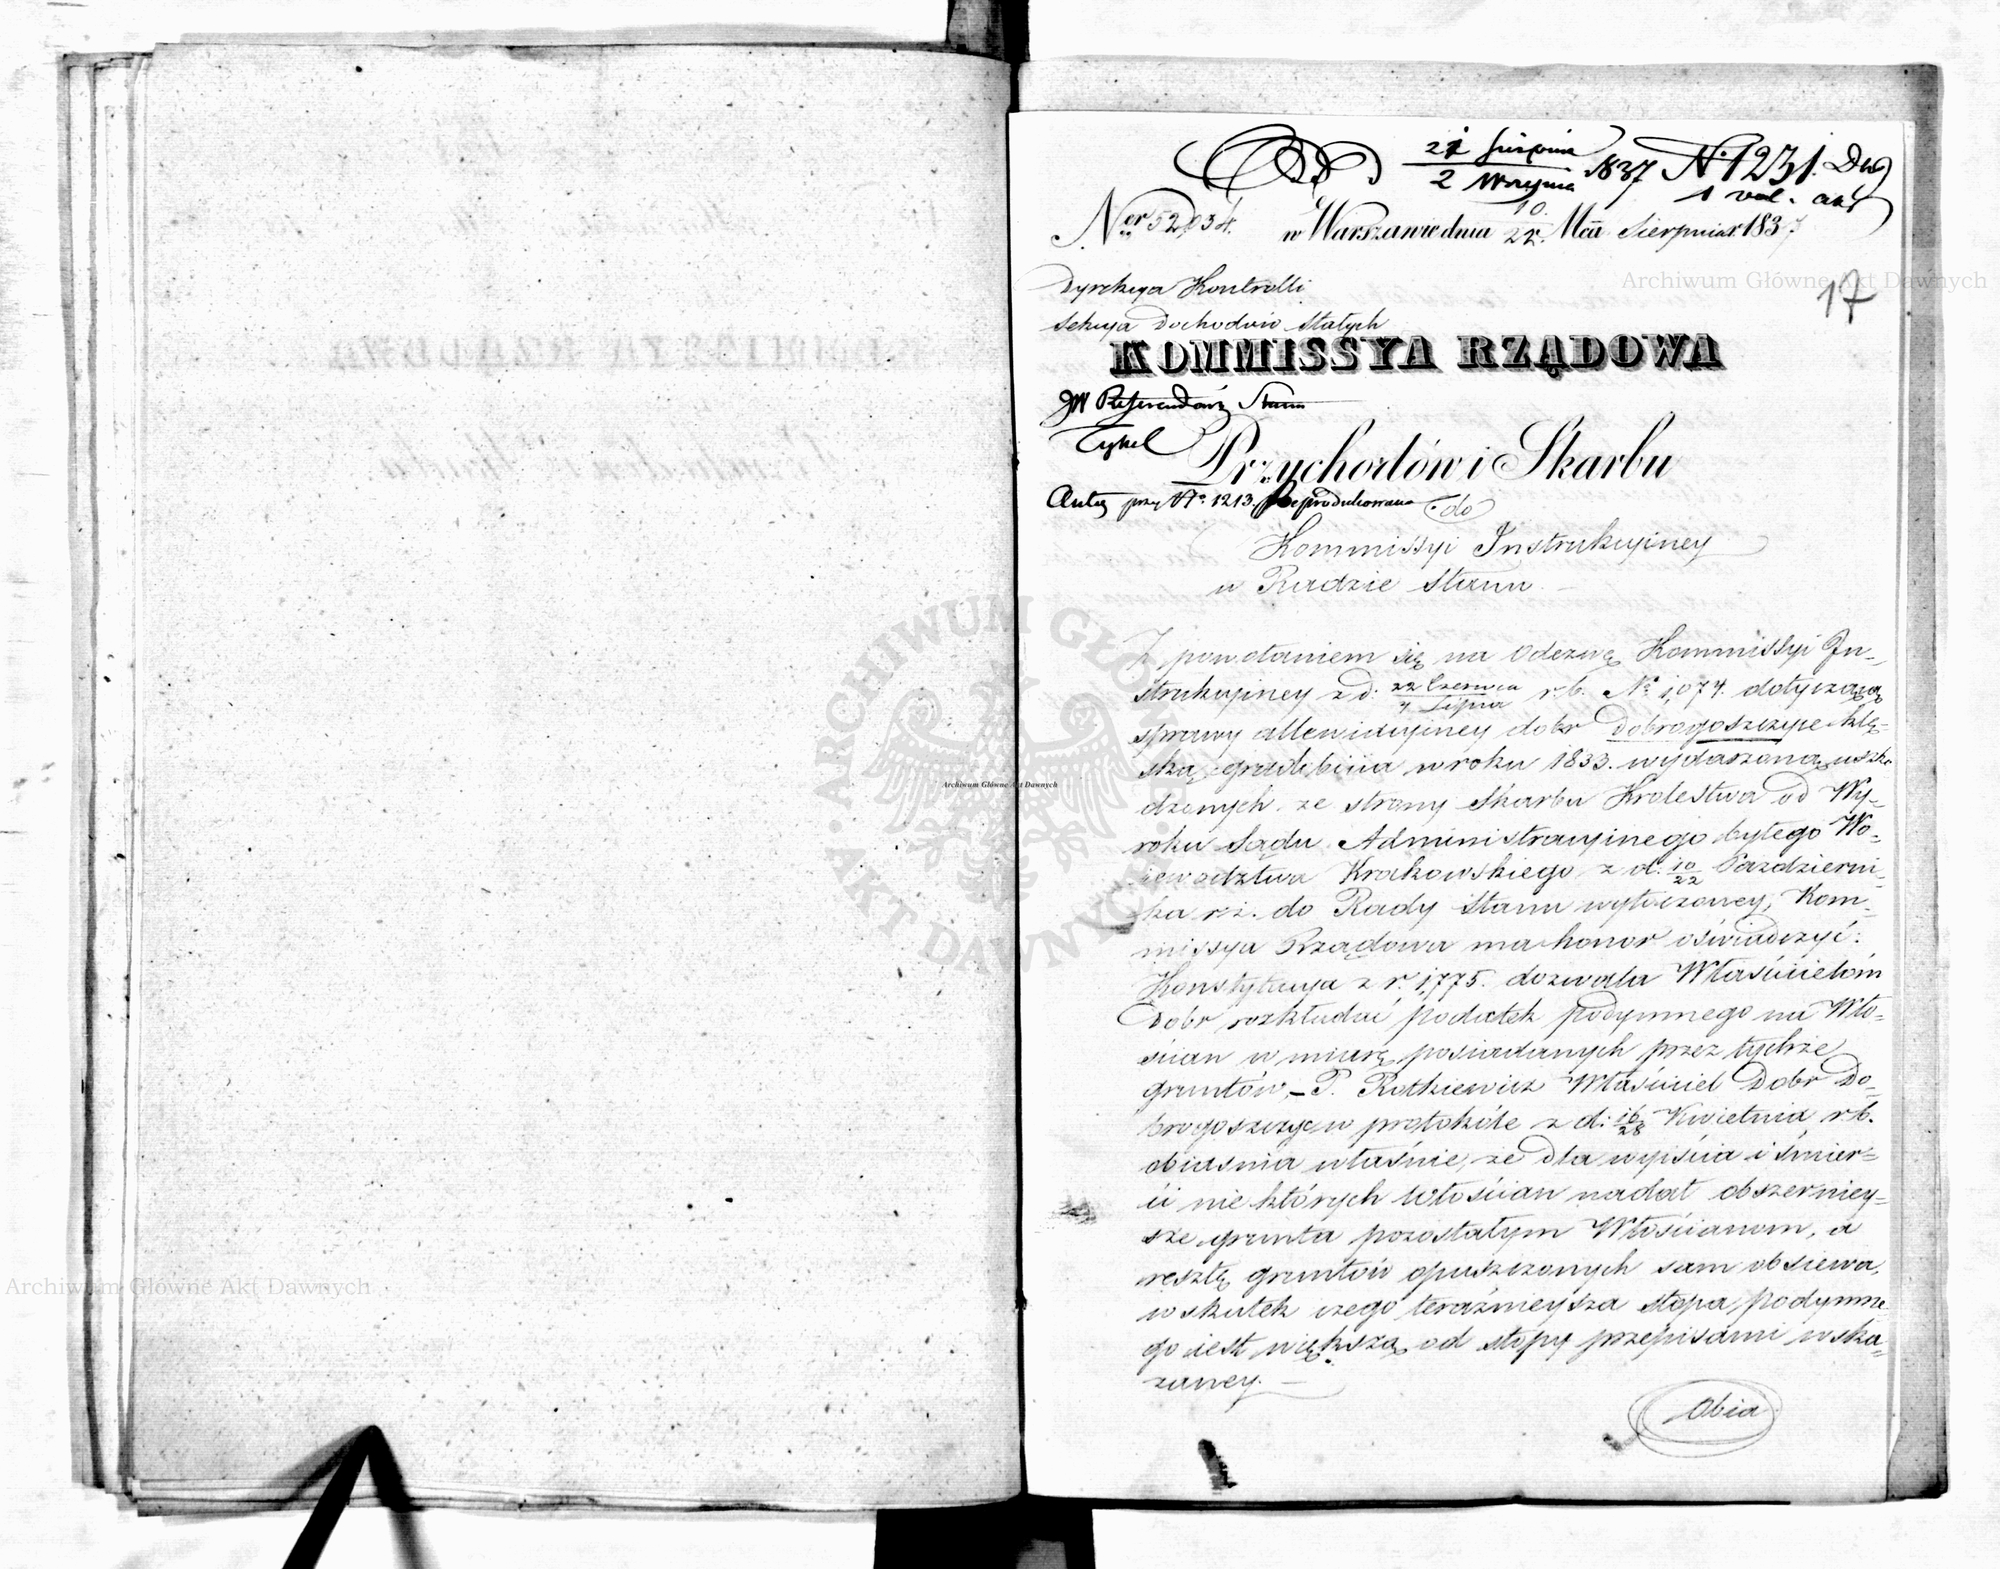 21 Sierpnia
2 Września 1837 N. 1231. Dw
1 vol. akt
Ner 52,034. w Warszawie dnia 10/22. Mca Sierpnia r. 1837.
17
Dyrekcya Kontrolli
Sekcya Dochodów Stałych
KOMMISSYA RZĄDOWA
JW Referendarz Stanu
Przychodów i Skarbu
przy N° 1213. reprodukowane
do
Kommissyi Instrukcyiney
w Radzie Stanu
Z powołaniem się na Odezwę Kommissyi In-
strukcyiney z d: 22 Czerwca / 4 Lipca r. b. N° 1,074. dotyczącą
sprawy allewiacyiney dobr Dobrogoszczyce klę-
ską gradobicia w roku 1833. wydarzoną uszko
dzonych, ze strony Skarbu Krolestwa od Wy-
roku Sądu Administracyinego byłego Wo-
iewództwa Krakowskiego z d: 10/22 Październi-
ka r. z. do Rady Stanu wytoczoney, Kom-
missya Rządowa ma honor oświadczyć:
Konstytucya z r. 1,775. dozwala Właścicielóm
Dobr rozkładać podatek podymnego na Wło-
ścian w miarę posiadanych przez tychże
gruntów, – P. Rutkiewicz Właściciel Dobr Do-
brogoszczyc w protokóle z d: 16/28 Kwietnia r. b.
obiasnia właśnie, że dla wyiścia i śmier-
ci nie których Włościan nadał obszerniey-
sze grunta pozostałym Włościanom, a
resztę gruntów opuszczonych sam obsiewa,
w skutek czego teraźnieysza stopa podymne
go iest większą od stopy przepisami wska-
zaney. –
Obia
Archiwum Główne Akt Dawnych
Archiwum Główne Akt Dawnych
Archiwum Główne Akt Dawnych
ARCHIWUM GŁÓWNE AKT DAWNYCH